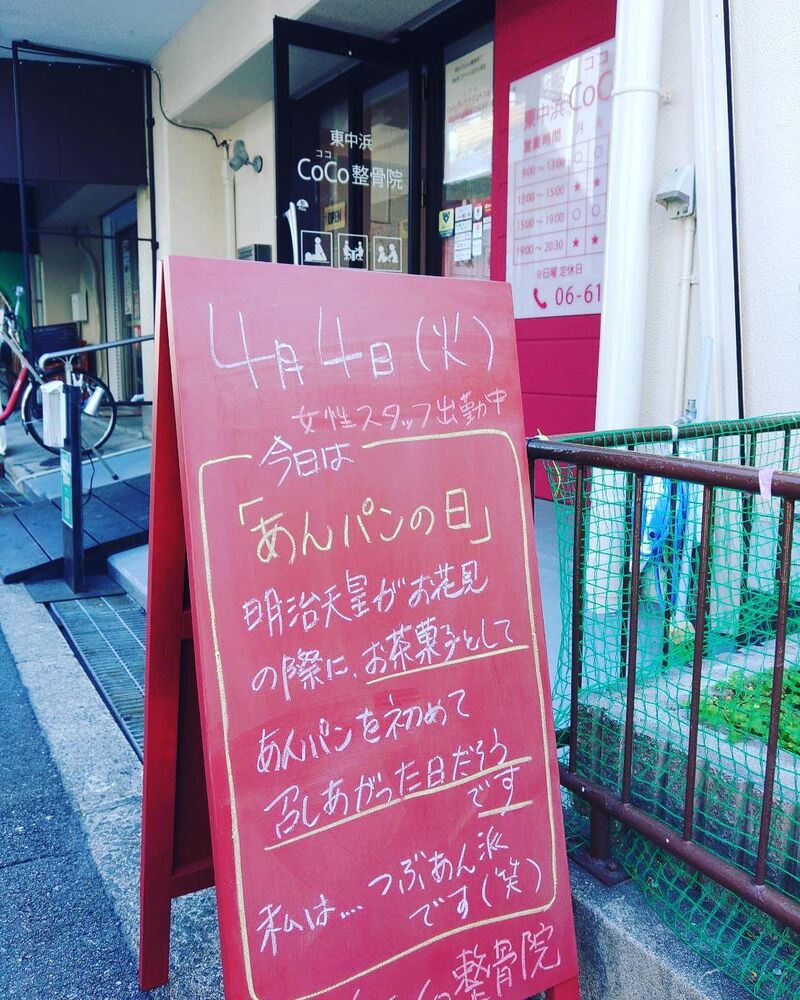 東中浜
ココ
CoCo 整骨院
OPEN
ココ
東中浜 CoC
営業時間 月 火
9:00〜13:00 ○ ○
13:00〜15:00 ★ ★
15:00〜19:00 ○ ○
19:00〜20:30 ★ ★
※日曜 定休日
06-61
4月4日(火)
女性スタッフ出勤中
今日は
「あんパンの日」
明治天皇がお花見
の際に、お茶菓子として
あんパンを初めて
召しあがった日だそう
です
私は....つぶあん派
です(笑)
整骨院